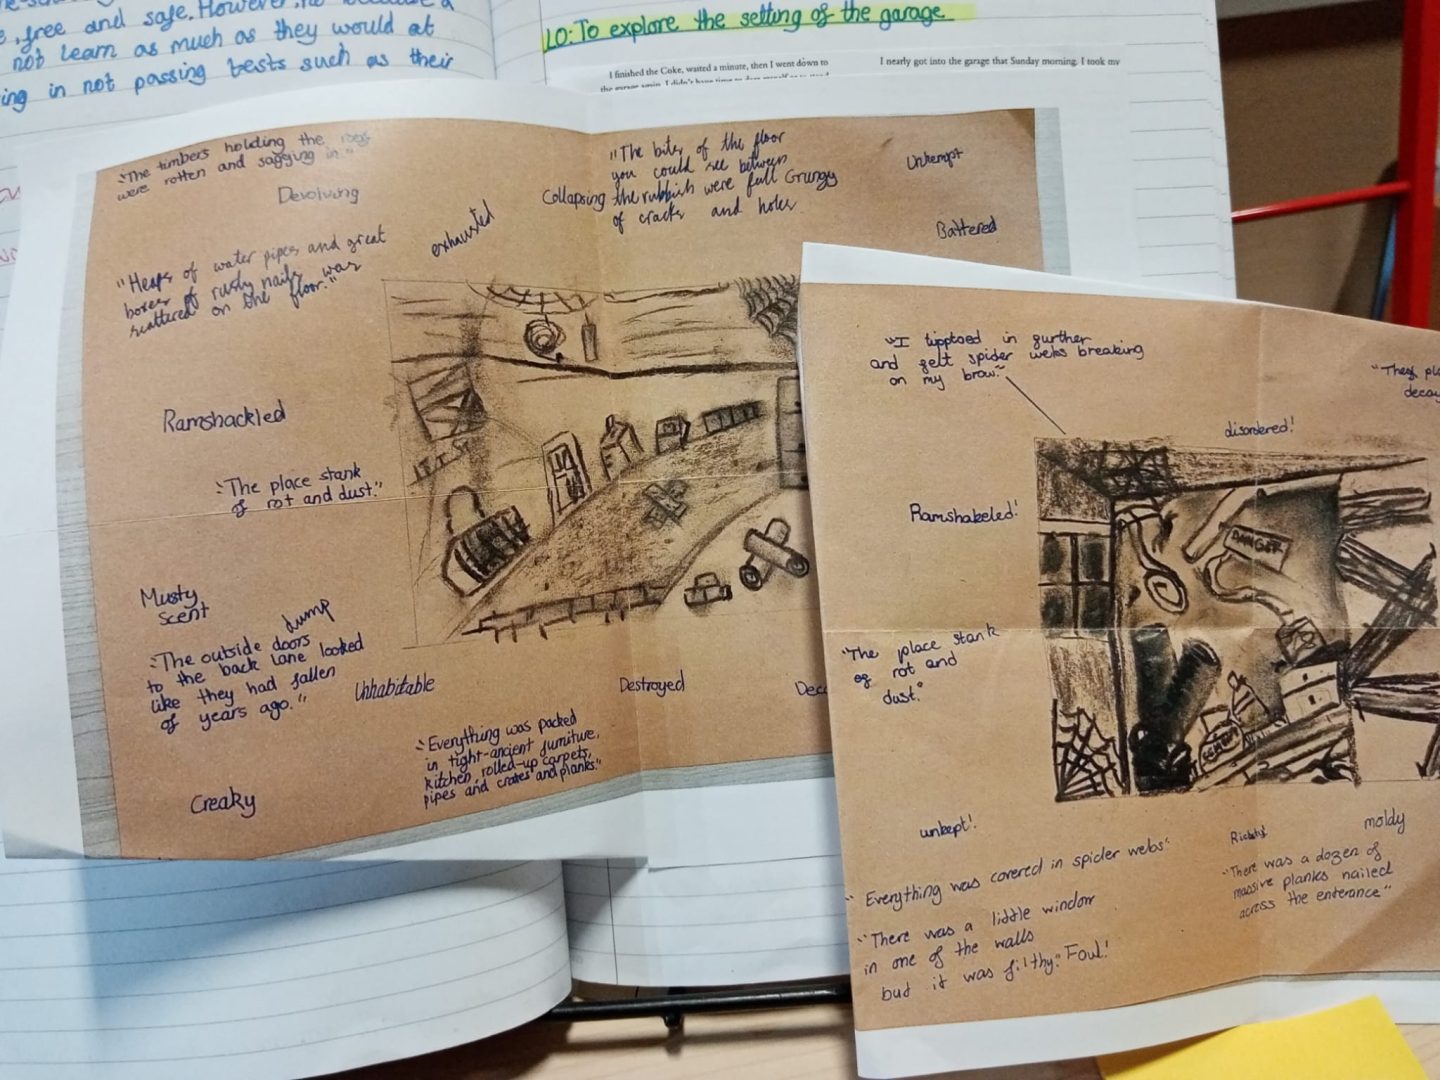 free and safe. However,
not learn as much as they would at
ing in not passing tests such as their
LO: To explore the setting of the garage
I finished the Coke, waited a minute, then I went down to
I nearly got into the garage that Sunday morning. I took my
"The timbers holding the roof
were rotten and sagging in."
Devolving
exhausted
Collapsing
"The bits of the floor
you could see between
the rubbish were full
of cracks and holes
Grungy
Unkempt
Battered
"Heaps of water pipes and great
boxes of rusty nails was
scattered on the floor."
Ramshackled
"The place stank
of rot and dust."
Musty
scent
dump
"The outside doors
to the back lane looked
like they had fallen
of years ago."
Unhabitable
Destroyed
Dec
Creaky
"Everything was packed
in tight-ancient furniture,
kitchen, rolled-up carpets,
pipes and crates and planks."
"I tipptoed in further
and felt spider webs breaking
on my brow."
"They pl
decay
disordered!
Ramshakeled!
DANGER
"The place stank
of rot and
dust."
CEMENT
unkept!
Rickety!
moldy
"Everything was covered in spider webs"
"There was a little window
in one of the walls
but it was filthy." Foul!
"There was a dozen of
massive planks nailed
across the enterance"